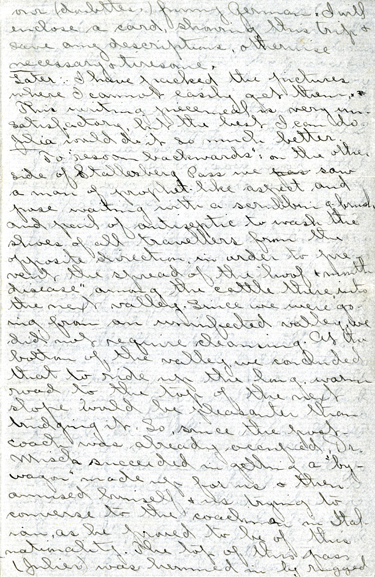 own (dialettes.) funny German. I will
enclose a card, showing this trip &
save any descriptions, otherwise
necessary, & tiresome.
Later: I have packed the pictures
where I cannot easily get them.
This writing piecemeal is very un-
satisfactory, but the best I can do.
would do it so much better.
To reason backwards: on the other
side of Stallerberg Pass we saw
a man of prophet-like aspect and
pose waiting with a scrubbing brush,
and pail of antiseptic to wash the
shoes of all travellers from the
opposite direction, in order to pre-
vent the spread of the "hoof & mouth
disease" among the cattle there, into
the next valley. Since we were go-
ing from an uninfected valley, we
did not require cleansing. At the
bottom of the valley we concluded
that to ride up the long, warm
road to the top of the next
slope would be pleasanter than
trudging it. So, since the post-
coach was already occupied, Dr.
succeeded in getting a "by-
wagon" made up for us & then
amused himself & us trying to
converse to the coachman in Ital-
ian, as he proved to be of this
nationality. The top of this pass
Julier was hemmed in by rugged